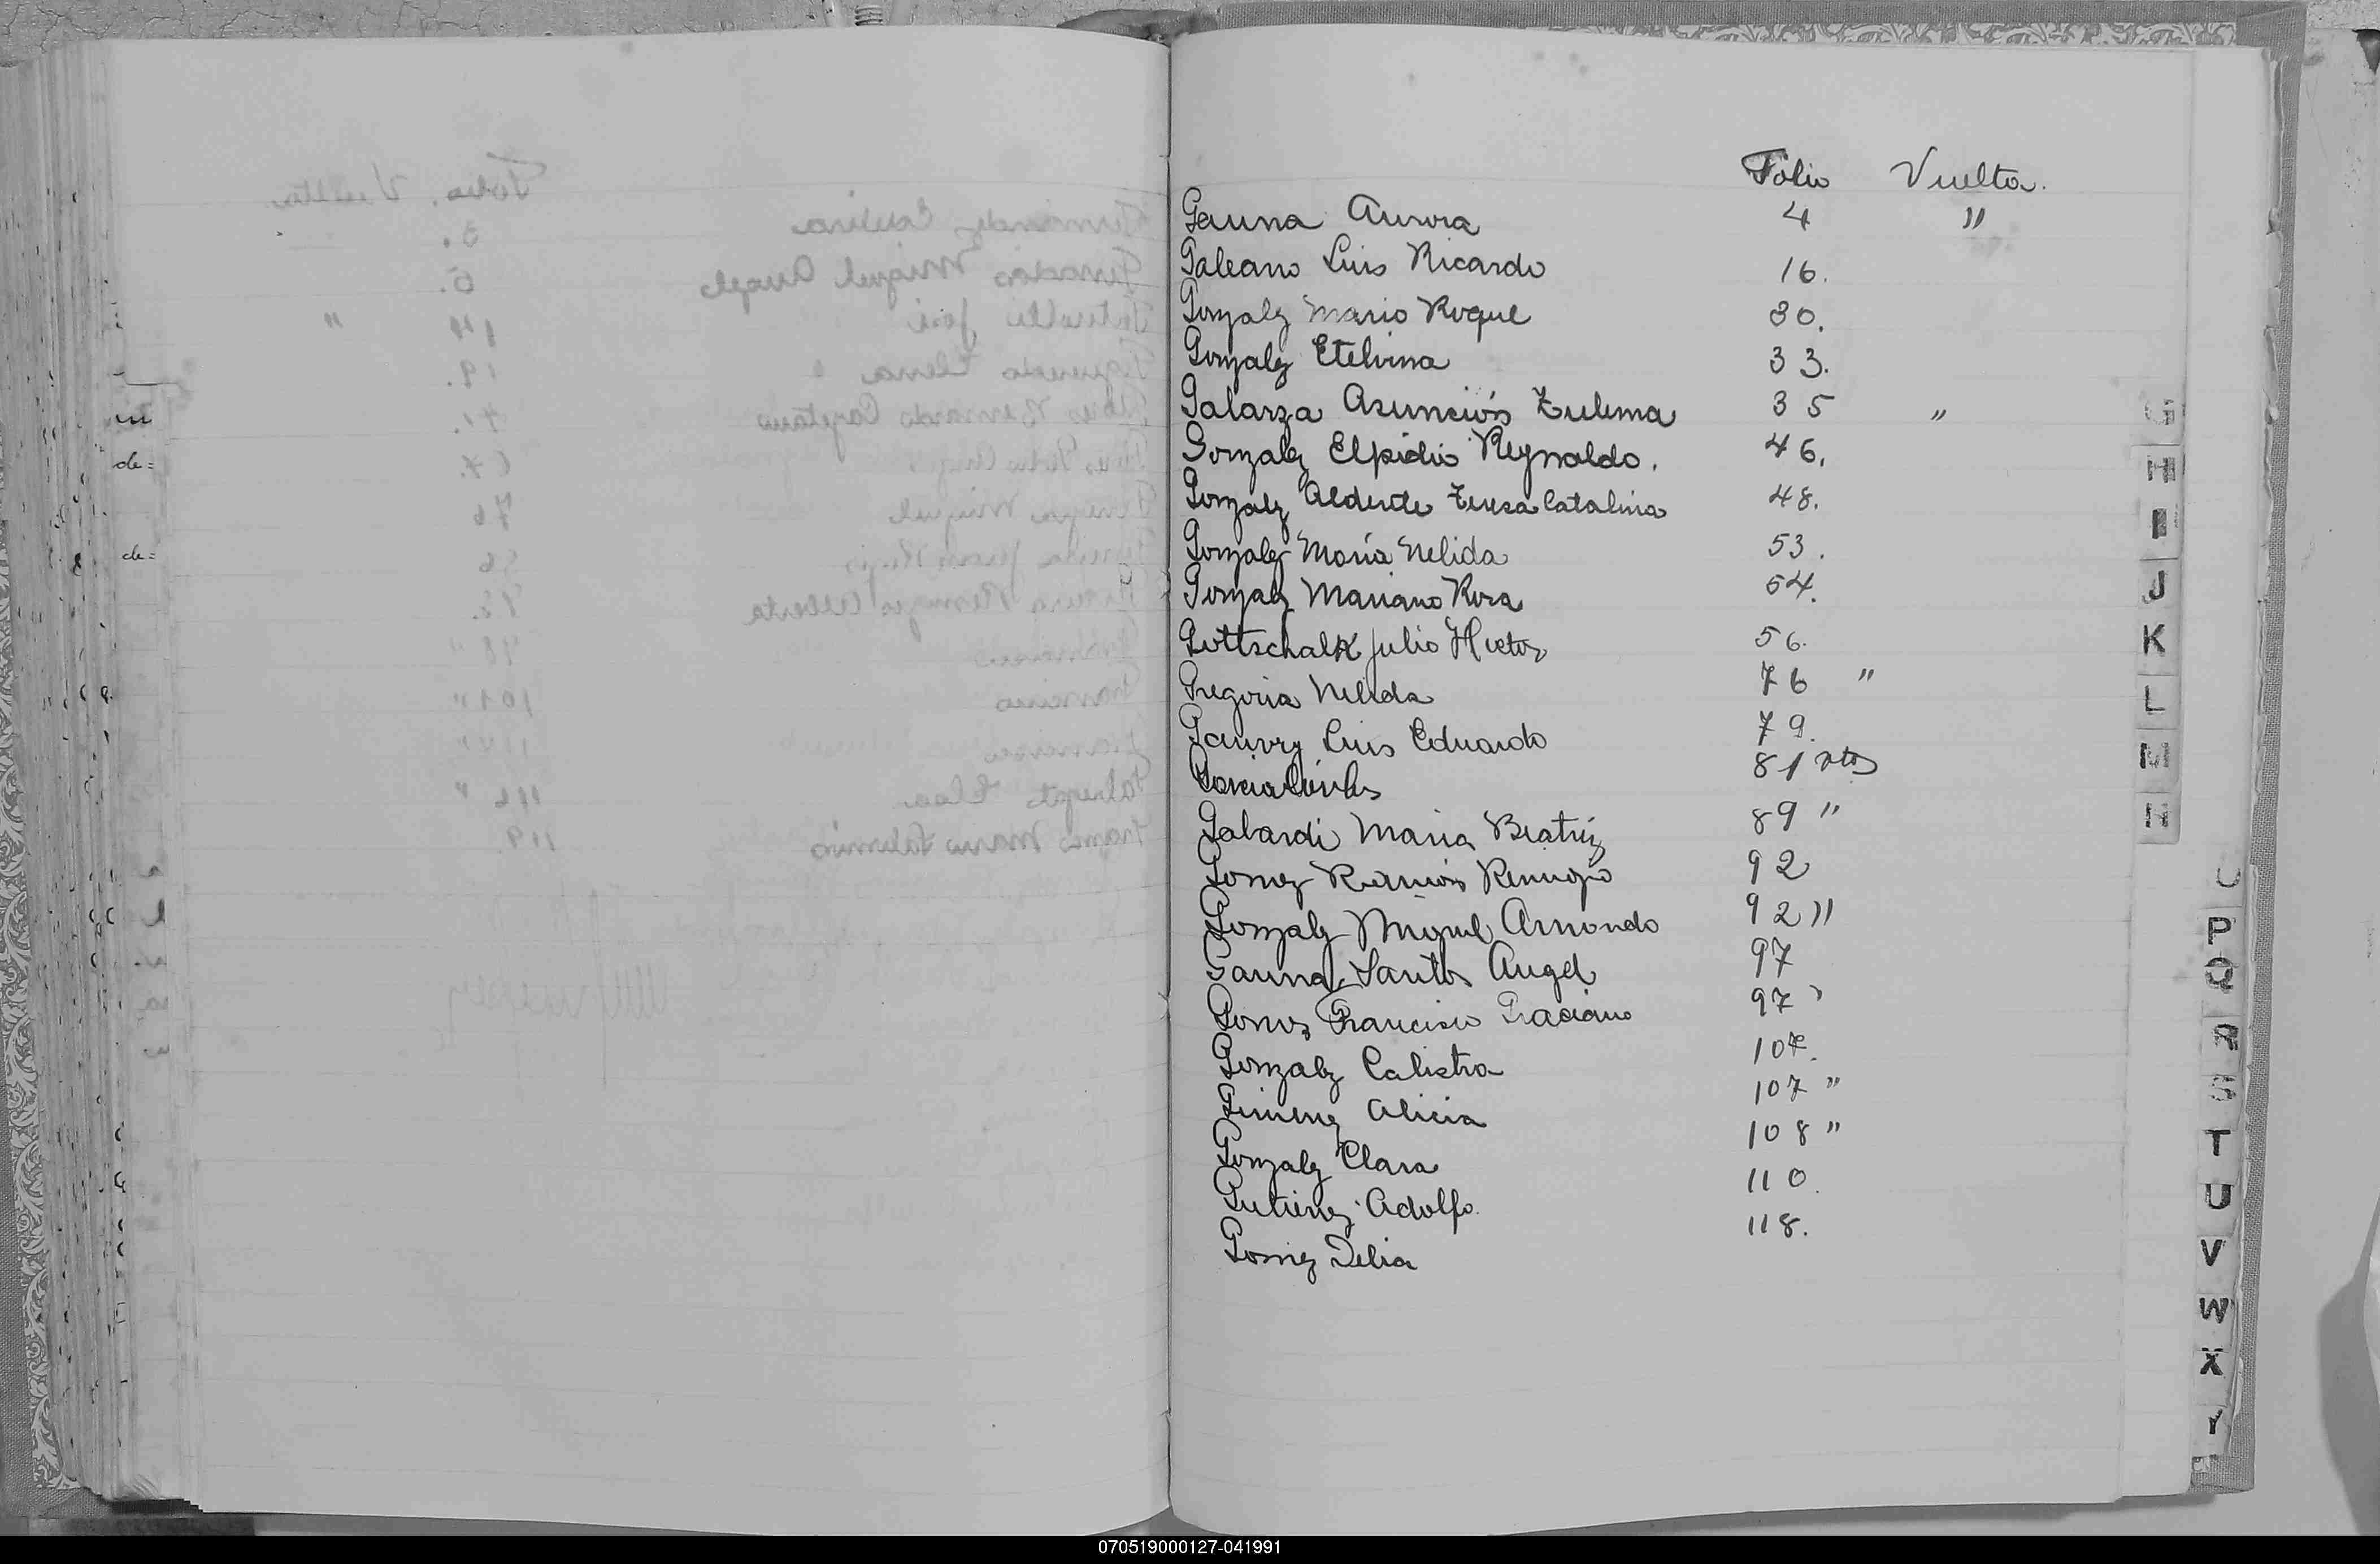 Folio Vuelta.
Gauna Aurora 4 "
Galeano Luis Ricardo 16.
Gonzalez Mario Roque 30.
Gonzalez Etelvina 33.
Galarza Asunción Zulema 35 "
Gonzalez Elpidio Reynaldo. 46.
Gonzalez Alderete Teresa Catalina 48.
Gonzalez María Nelida 53.
Gonzalez Mariano Rosa 54.
Gottschalk Julio Hector 56.
Gregoria Nelida 76 "
Luis Eduardo 79.
Garcia 81 vto
Galardi Maria Beatriz 89 "
Gomez Ramón Remigio 92
Gonzalez Miguel Armando 92 "
Gauna Santos Angel 97
Gomez Francisco Graciano 97 "
Gonzalez Calistra 107.
Gimenez Alicia 107 "
Gonzalez Clara 108 "
Gutierrez Adolfo. 110.
Gomez Delia 118.
de=
de=
G
H
I
J
K
L
M
N
P
Q
R
S
T
U
V
W
X
Y
070519000127-041991